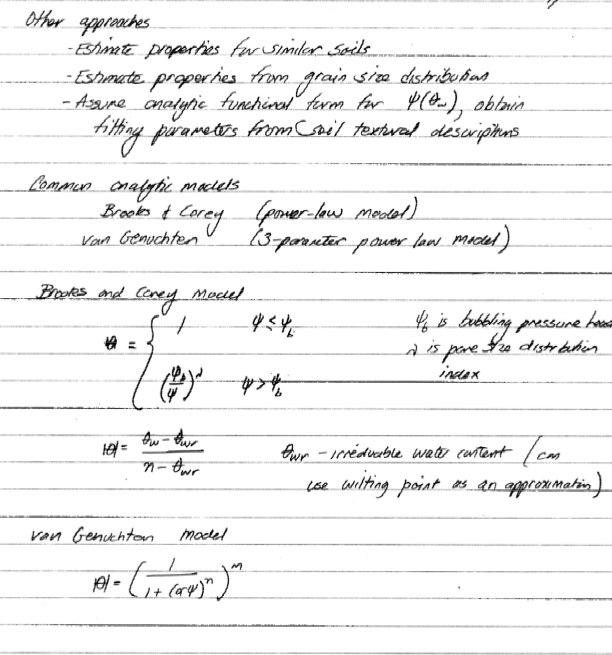 Other approaches
- Estimate properties for similar soils
- Estimate properties from grain size distribution
- Assume analytic functional form for ψ(θw), obtain
fitting parameters from soil textural descriptions
Common analytic models
Brooks & Corey (power-law model)
van Genuchten (3-parameter power law model)
Brooks and Corey model
Θ = { 1 ψ ≤ ψb ψb is bubbling pressure head
λ is pore size distribution
(ψb/ψ)^λ ψ > ψb index
Θ = (θw - θwr)/(n - θwr) θwr - irreducible water content (can
use wilting point as an approximation)
van Genuchten model
Θ = (1/(1 + (αψ)^n))^m